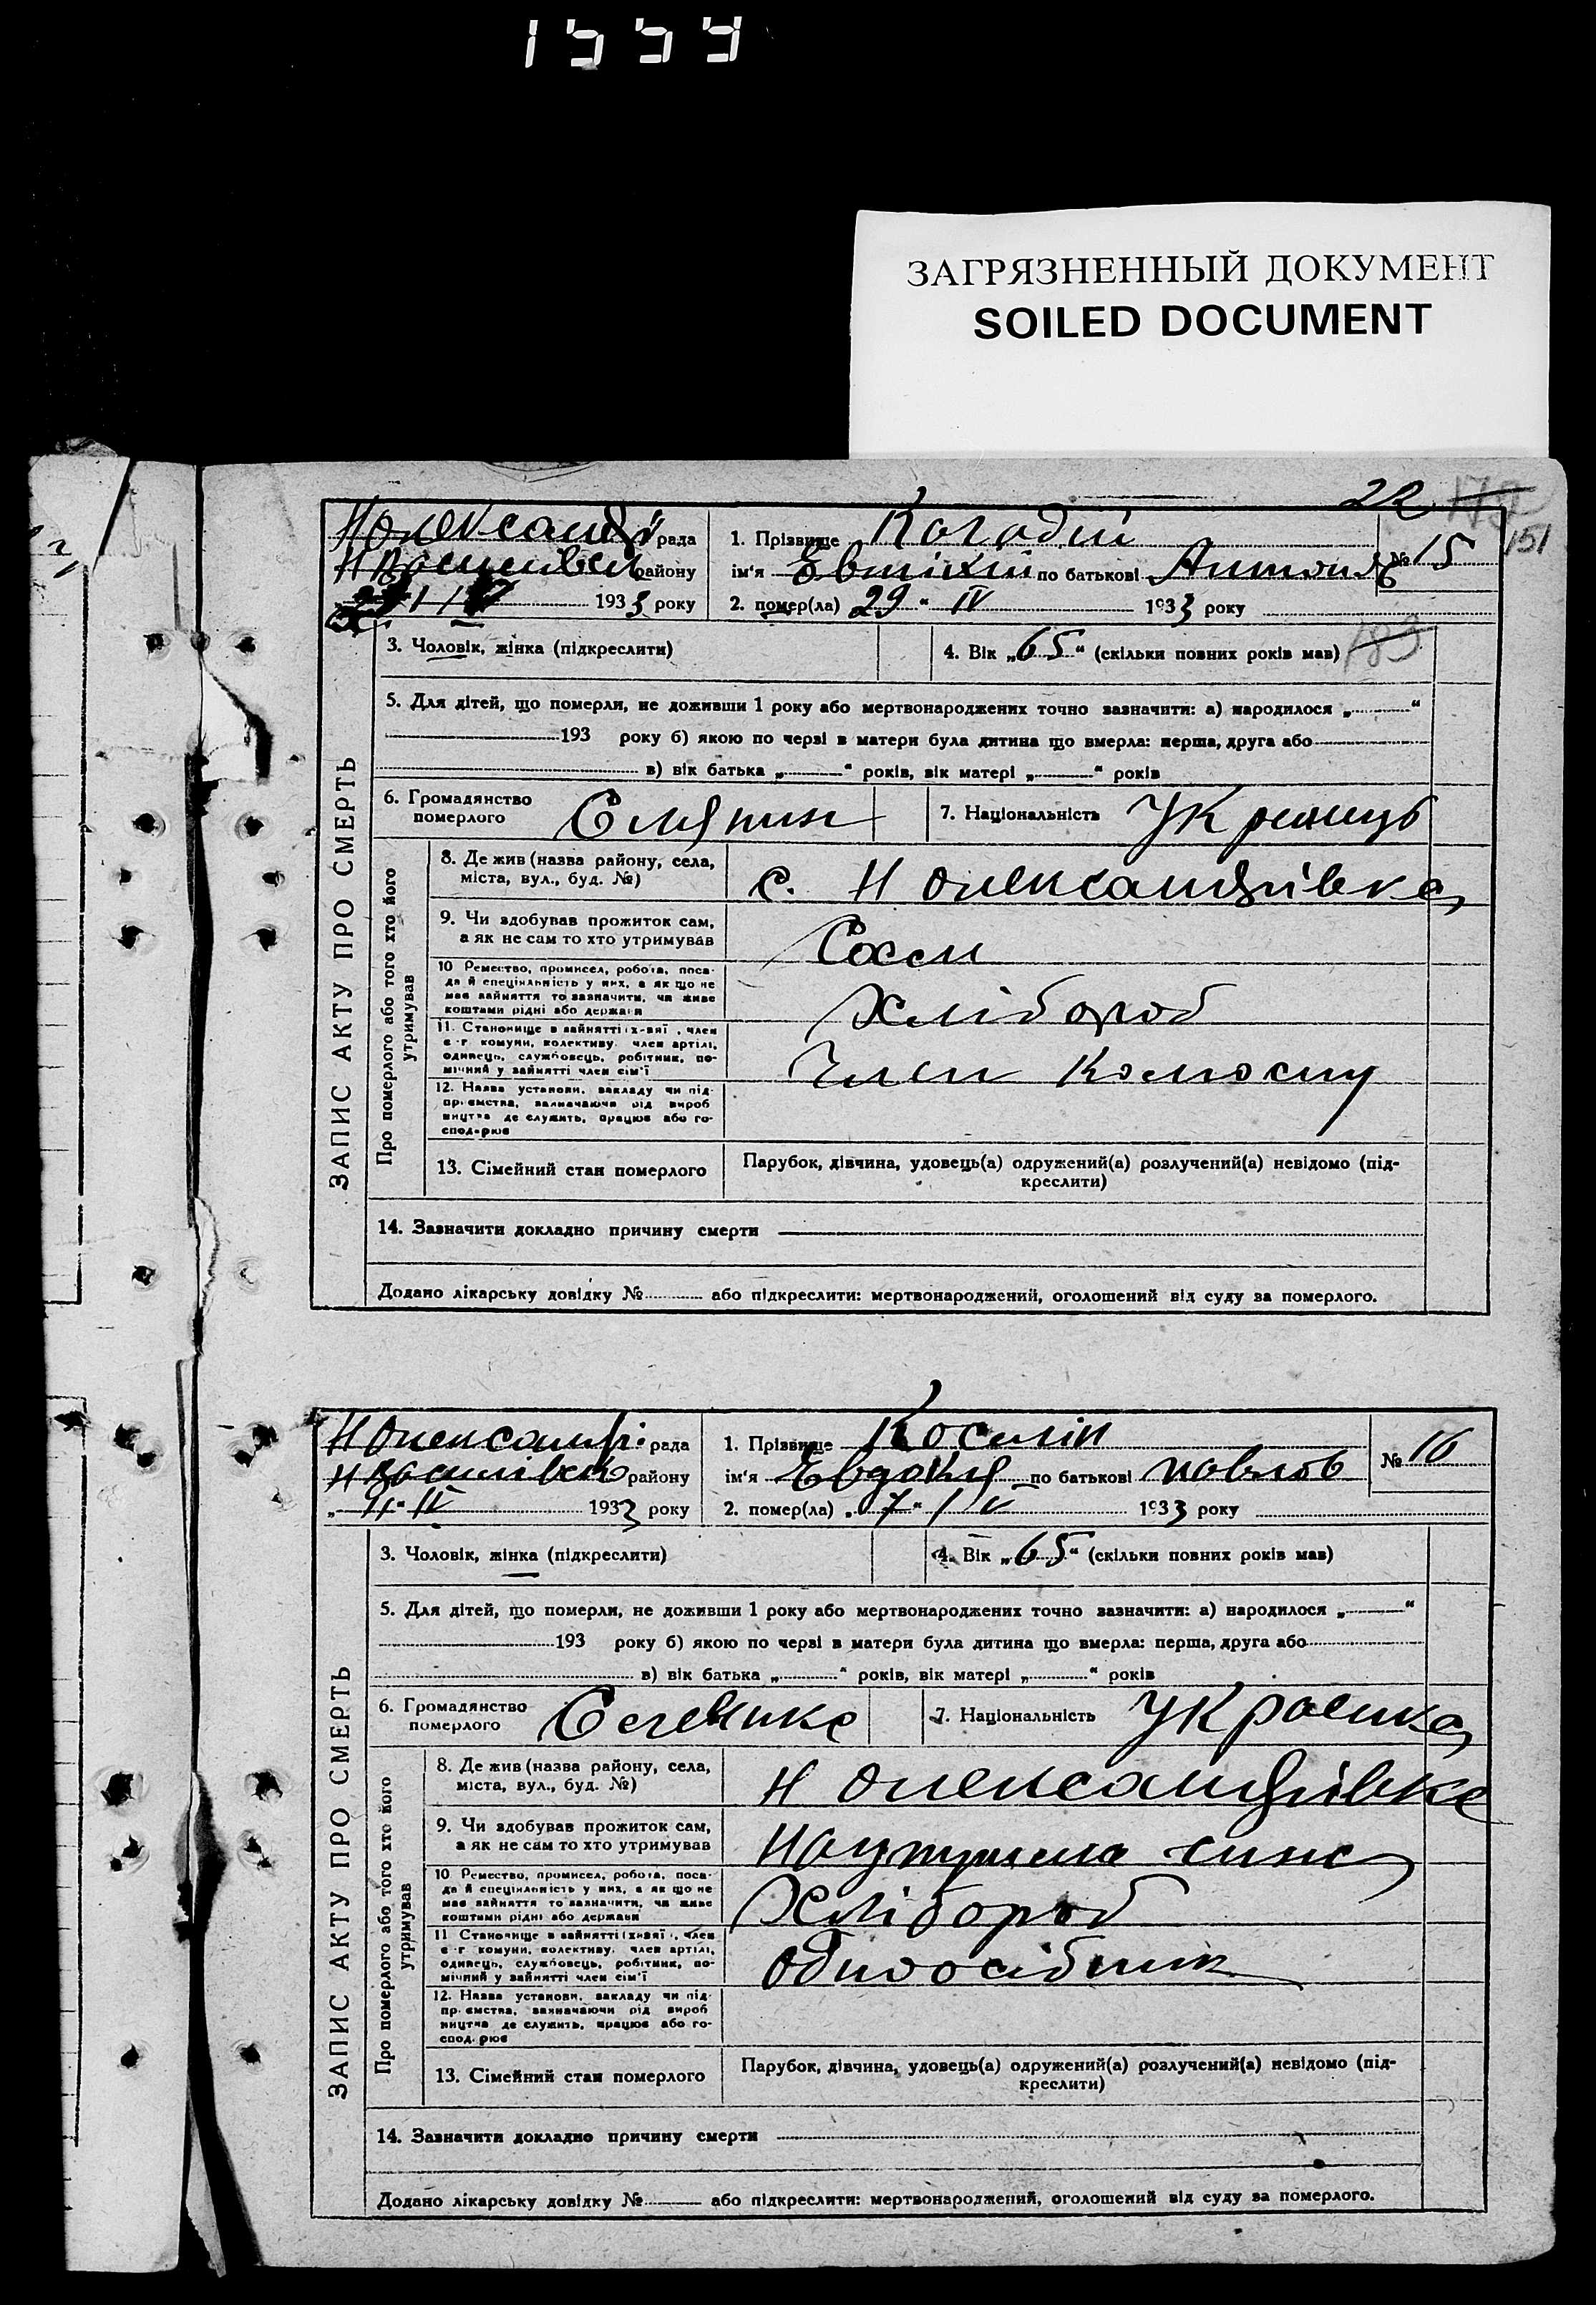 1559
ЗАГРЯЗНЕННЫЙ ДОКУМЕНТ
SOILED DOCUMENT
22 151
рада 1. Прізвище
району ім'я по батькові Антонов № 15
1933 року 2. помер(ла) 29 " IV 1933 року
3. Чоловік, жінка (підкреслити) 4. Вік „65" (скільки повних років мав) 183
5. Для дітей, що померли, не доживши 1 року або мертвонароджених точно зазначити: а) народилося „ "
193 року б) якою по черзі в матери була дитина що вмерла: перша, друга або
в) вік батька „ " років, вік матері „ " років
6. Громадянство 7. Національність Украинець
померлого Селянин
8. Де жив (назва району, села,
міста, вул., буд. №) с. Н Олександрівка
9. Чи здобував прожиток сам,
а як не сам то хто утримував Сам
10 Ремество, промисел, робота, поса-
да й спеціяльність у них, а як що не
має зайняття то зазначити, чи живе
коштами рідні або держави Хлібороб
11. Становище в зайнятті: х-вяї, член
с-г комуни, колективу, член артілі,
одинець, службовець, робітник, по-
мічний у зайнятті член сім'ї Член
12. Назва установи, закладу чи під-
приємства, зазначаючи рід вироб
ництва де служить, працює або го-
сподарює
13. Сімейний стан померлого Парубок, дівчина, удовець(а) одружений(а) розлучений(а) невідомо (під-
креслити)
14. Зазначити докладно причину смерти
Додано лікарську довідку № або підкреслити: мертвонароджений, оголошений від суду за померлого.
ЗАПИС АКТУ ПРО СМЕРТЬ
Про померлого або того хто його
утримував
Н Олександрі рада 1. Прізвище Косилін
Н Василівско району ім'я Евдокия по батькові Павлов № 16
„ 11 " IV 1933 року 2. помер(ла) „ 7 " IV 1933 року
3. Чоловік, жінка (підкреслити) 4. Вік „65" (скільки повних років мав)
5. Для дітей, що померли, не доживши 1 року або мертвонароджених точно зазначити: а) народилося „ "
193 року б) якою по черзі в матери була дитина що вмерла: перша, друга або
в) вік батька „ " років, вік матері „ " років
6. Громадянство 7. Національність Украинка
померлого Селянка
8. Де жив (назва району, села,
міста, вул., буд. №) Н Олександрівка
9. Чи здобував прожиток сам,
а як не сам то хто утримував сина
10 Ремество, промисел, робота, поса-
да й спеціяльність у них, а як що не
має зайняття то зазначити, чи живе
коштами рідні або держави Хлібороб
11 Становище в зайнятті (х-вяї, член
с-г комуни, колективу, член артілі,
одинець, службовець, робітник, по-
мічний у зайнятті член сім'ї Одноосібник
12. Назва установи, закладу чи під-
приємства, зазначаючи рід вироб
ництва де служить, працює або го-
сподарює
13. Сімейний стан померлого Парубок, дівчина, удовець(а) одружений(а) розлучений(а) невідомо (під-
креслити)
14. Зазначити докладно причину смерти
Додано лікарську довідку № або підкреслити: мертвонароджений, оголошений від суду за померлого.
ЗАПИС АКТУ ПРО СМЕРТЬ
Про померлого або того хто його
утримував